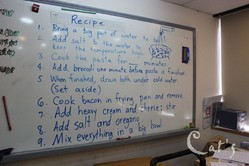 Recipe
1. Bring a big pot of water to boil
2. Add salt to the water
3. Keep the temperature high
Cook the pasta for minutes
4. Add broccoli one minute before pasta is finished
5. When finished, drain both under cold water
(Set aside)
6. Cook bacon in frying pan and remove
7. Add heavy cream and
8. Add salt and oregano
9. Mix everything in a big bowl